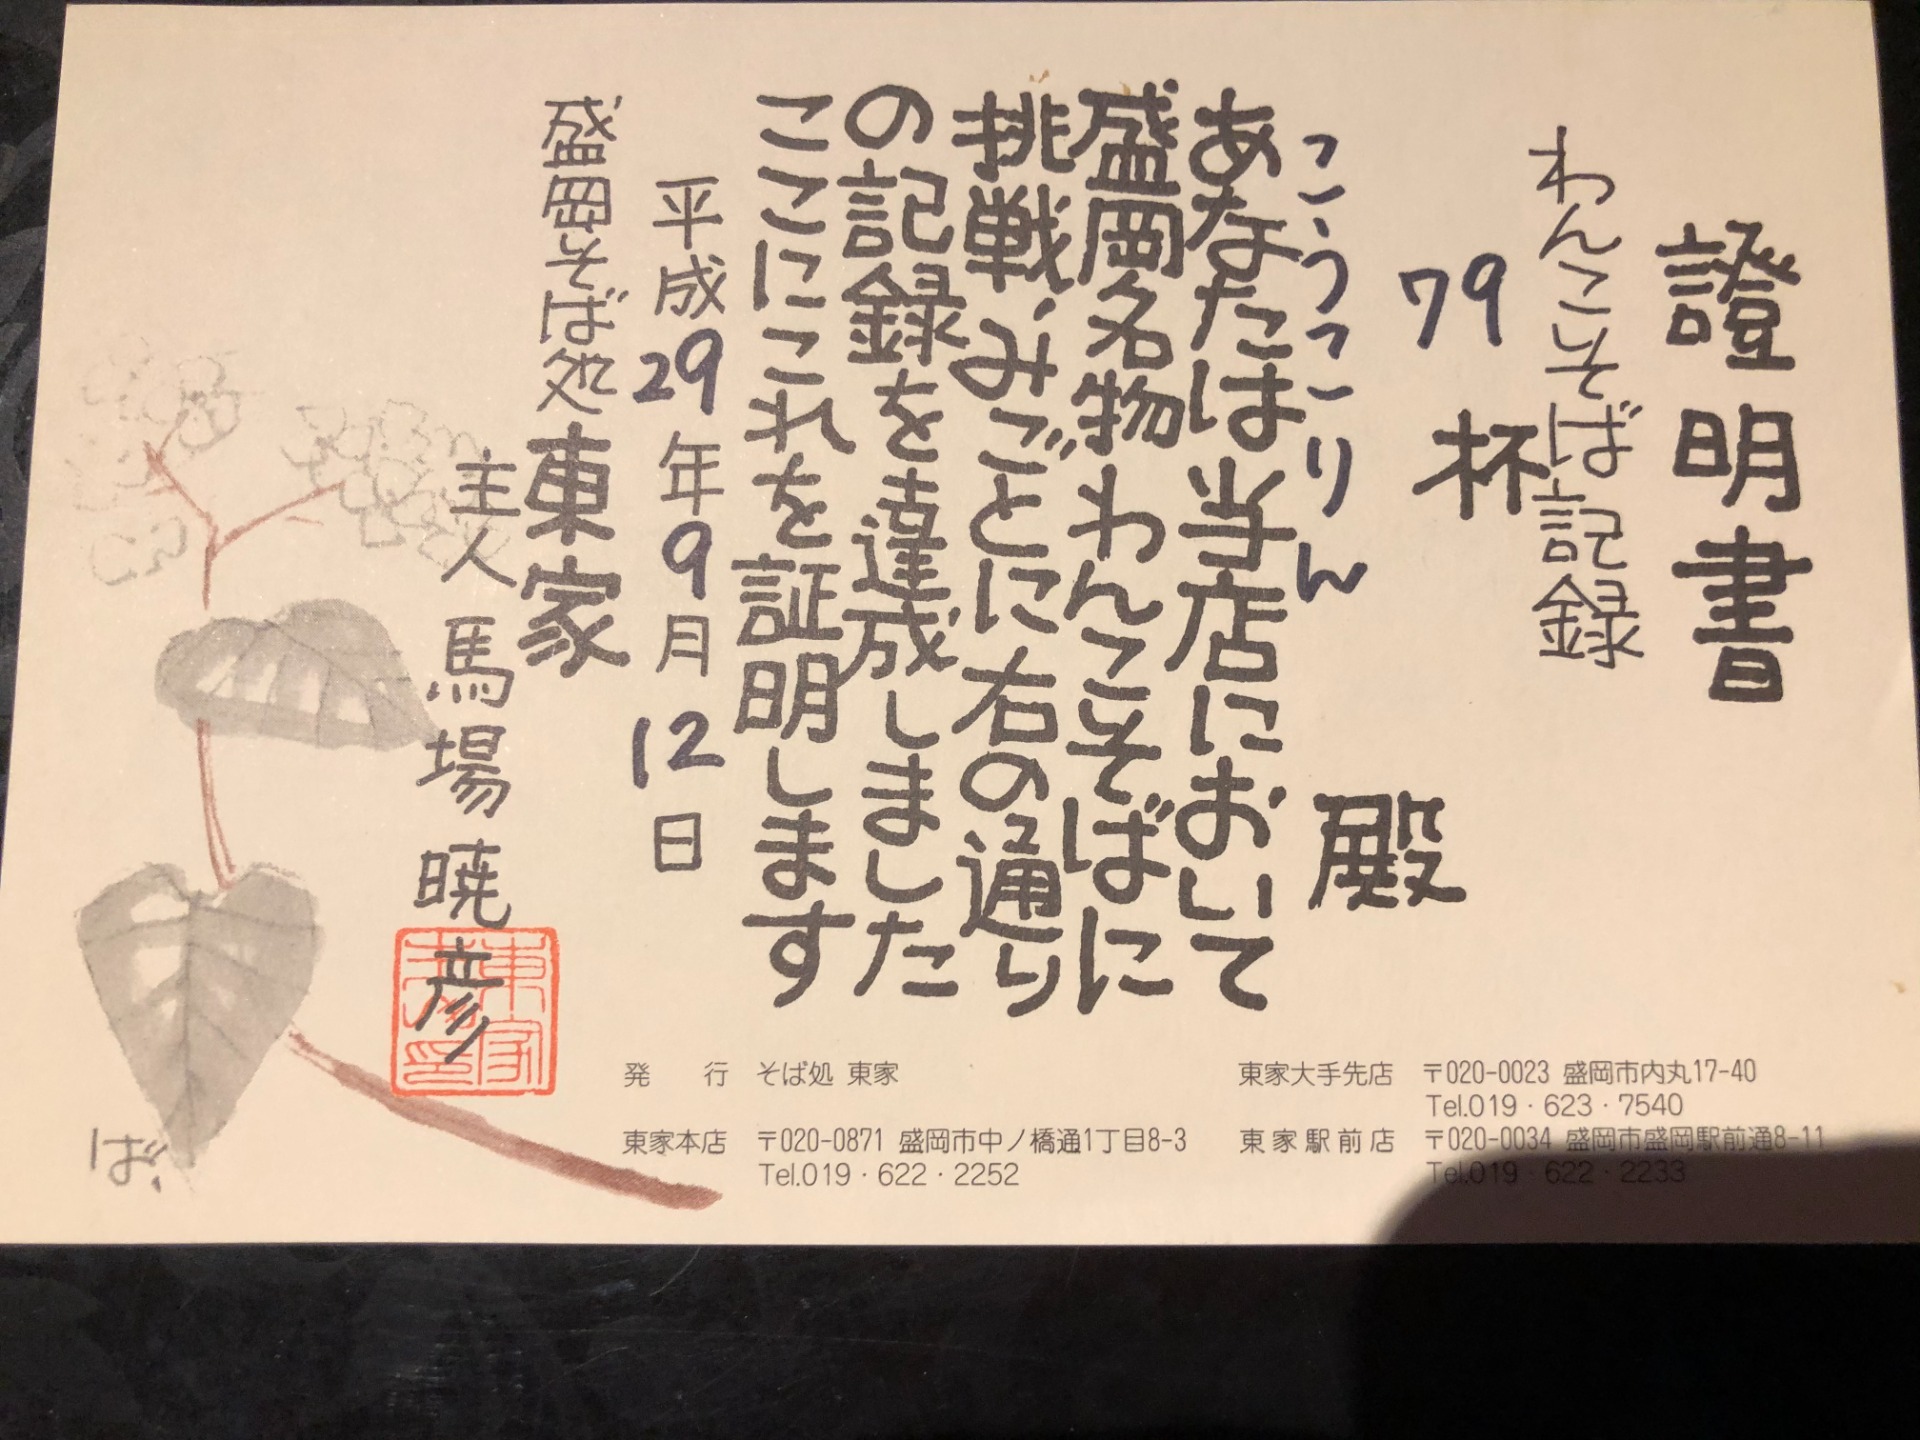 證明書
わんこそば記録
79杯
こうこりん 殿
あなたは当店において
盛岡名物わんこそばに
挑戦、みごとに右の通り
の記録を達成しました
ここにこれを証明します
平成29年9月12日
盛岡そば処 東家
主人 馬場暁彦
ば
発 行 そば処 東家
東家本店 〒020-0871 盛岡市中ノ橋通1丁目8-3
Tel.019・622・2252
東家大手先店 〒020-0023 盛岡市内丸17-40
Tel.019・623・7540
東家駅前店 〒020-0034 盛岡市盛岡駅前通8-11
Tel.019・622・2233